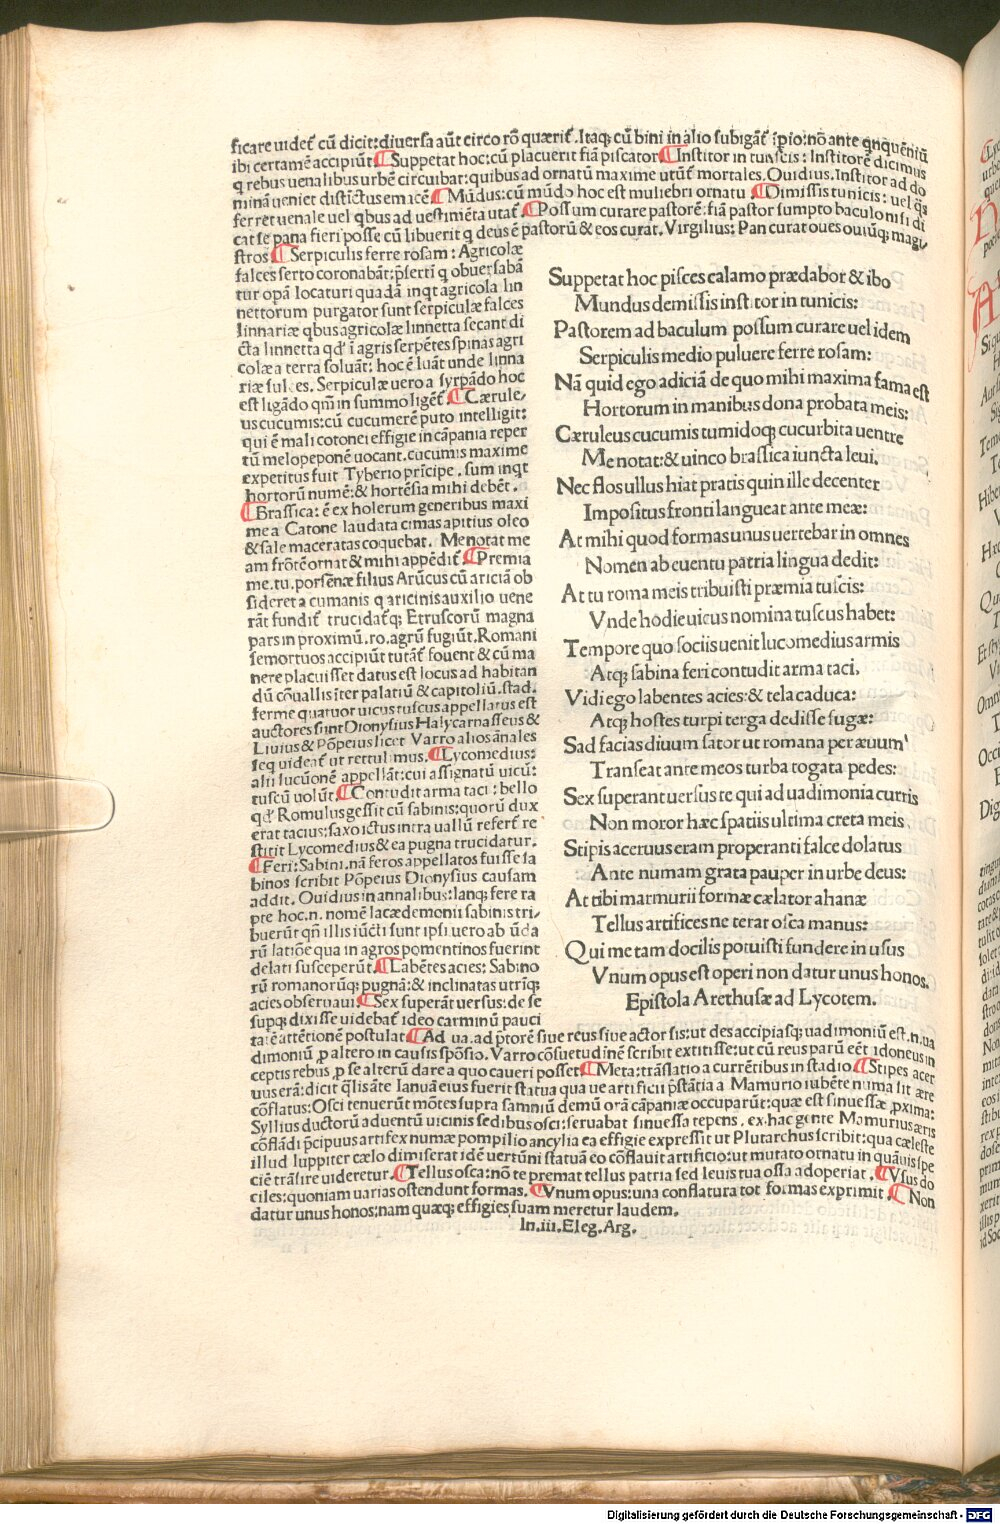 ficare uidet᷑ cū dicit:diuersa aūt circo rō quærit᷑. Itaq; cū bini in alio subigāt᷑ īpio:nō ante qnquēniū
ibi certamē accipiūt ¶Suppetat hoc:cū placuerit fiā piscator ¶Institor in tunicis: Institorē dicimus
q rebus uenalibus urbē circuibat:quibus ad ornatū maxime utūt᷑ mortales. Ouidius. Institor ad do
minā ueniet distīctus emacē ¶Mūdus:cū mūdo hoc est muliebri ornatu ¶Dimissis tunicis: uel q̄s
ferret uenale uel qbus ad uestimēta utat᷑ ¶Possum curare pastorē:fiā pastor sumpto baculo nisi di
cat se pana fieri posse cū libuerit q deus ē pastorū & eos curat. Virgilius: Pan curat oues ouiūq; magi/
stros ¶Serpiculis ferre rosam: Agricolæ
falces serto coronabāt:p̄sertī q obuersabā
tur opā locaturi quadā inqt agricola lin
nettorum purgator sunt serpiculæ falces
linnariæ qbus agricolæ linnetta secant di
cta linnetta qd' ī agris serpētes spinas agri
colæ a terra soluāt: hoc ē luāt unde linna
riæ fulces. Serpiculæ uero a syrpādo hoc
est ligādo qm̄ in summo ligēt᷑ ¶Cærule/
us cucumis:cū cucumerē puto intelligit:
qui ē mali cotonei effigie in cāpania reper
tū melopeponē uocant. cucumis maxime
expetitus fuit Tyberio prīcipe. sum inqt
hortorū numē:& hortēsia mihi debēt.
¶Brassica: ē ex holerum generibus maxi
me a Catone laudata cimas apitius oleo
& sale maceratas coquebat. Me notat me
am frōtē ornat & mihi appēdit᷑ ¶Premia
me. tu. porsenæ filius Arūcus cū ariciā ob
sideret a cumanis q aricinis auxilio uene
rāt fundit᷑ trucidat᷑q; Etruscorū magna
pars in proximū. ro. agrū fugiūt. Romani
semortuos accipiūt tutāt᷑ fouent & cū ma
nere placuisset datus est locus ad habitan
dū cōuallis iter palatiū & capitoliū. stad.
ferme quatuor uicus tuscus appellatus est
auctores sunt Dionysius Halycarnasseus &
Liuius & Pōpeius licet Varro alios ānales
seq uideat᷑ ut rettulimus. ¶Lycomedius:
alii lucūonē appellāt:cui assignatū uicū:
tuscū uolūt ¶Contudit arma taci: bello
qd' Romulus gessit cū sabinis:quorū dux
erat tacius:saxo ictus intra uallū refert᷑ re
stitit Lycomedius & ea pugna trucidatur.
¶Feri: Sabini. nā feros appellatos fuisse sa
binos scribit Pōpeius Dionysius causam
addit. Ouidius in annalibus:lanq; fere ra
pte hoc. n. nomē lacædemonii sabinis tri/
buerūt qn̄ illis iūcti sunt ipsi uero ab ūda
rū latiōe qua in agros pomentinos fuerint
delati susceperūt. ¶Labētes acies: Sabino
rū romanorūq; pugnā:& inclinatas utriq;
acies obseruaui: ¶Sex superāt uersus: de se
supq; dixisse uidebat᷑ ideo carminū pauci
Suppetat hoc pisces calamo prædabor & ibo
Mundus demissis institor in tunicis:
Pastorem ad baculum possum curare uel idem
Serpiculis medio puluere ferre rosam:
Nā quid ego adiciā de quo mihi maxima fama est
Hortorum in manibus dona probata meis:
Cæruleus cucumis tumidoq; cucurbita uentre
Me notat:& uinco brassica iuncta leui.
Nec flos ullus hiat pratis quin ille decenter
Impositus fronti langueat ante meæ:
At mihi quod formas unus uertebar in omnes
Nomen ab euentu patria lingua dedit:
At tu roma meis tribuisti præmia tuscis:
Vnde hodie uicus nomina tuscus habet:
Tempore quo sociis uenit lucomedius armis
Atq; sabina feri contudit arma taci.
Vidi ego labentes acies:& tela caduca:
Atq; hostes turpi terga dedisse fugæ:
Sad facias diuum sator ut romana per æuum
Transeat ante meos turba togata pedes:
Sex superant uersus te qui ad uadimonia curris
Non moror hæc spatiis ultima creta meis.
Stipis aceruus eram properanti falce dolatus
Ante numam grata pauper in urbe deus:
At tibi marmurii formæ cælator ahanæ
Tellus artifices ne terat osca manus:
Qui me tam docilis potuisti fundere in usus
Vnum opus est operi non datur unus honos.
Epistola Arethusæ ad Lycotem.
tatē attētionē postulat ¶Ad ua. ad p̄torē siue reus siue actor sis:ut des accipiasq; uadimoniū est. n. ua
dimoniū ꝑ altero in causis spōsio. Varro cōsuetudinē scribit extitisse:ut cū reus parū eēt idoneus in
ceptis rebus ꝑ se alterū dare a quo caueri posset ¶Meta:trāslatio a currētibus in stadio ¶Stipes acer
uus erā:dicit q̄lisāte Ianuā eius fuerit statua qua ue artificii p̄stātia a Mamurio iubēte numa sit ære
cōflatus: Osci tenuerūt mōtes supra samniū demū orā cāpaniæ occuparūt:quæ est sinuessæ ꝓxima:
Syllius ductorū aduentū uicinis sedibus osci:seruabat sinuessa tepens. ex hac gente Mamurius æris
cōflādi p̄cipuus artifex numæ pompilio ancylia ea effigie expressit ut Plutarchus scribit:qua cæleste
illud Iuppiter cælo dimiserat idē uertūni statuā eo cōflauit artificio:ut mutato ornatu in quāuis spe
ciē trāsire uideretur. ¶Tellus osca:nō te premat tellus patria sed leuis tua ossa adoperiat. ¶Vsus do
ciles:quoniam uarias ostendunt formas. ¶Vnum opus:una conflatura tot formas exprimit. ¶Non
datur unus honos:nam quæq; effigies suam meretur laudem.
In.iii.Eleg.Arg.
Digitalisierung gefördert durch die Deutsche Forschungsgemeinschaft - DFG